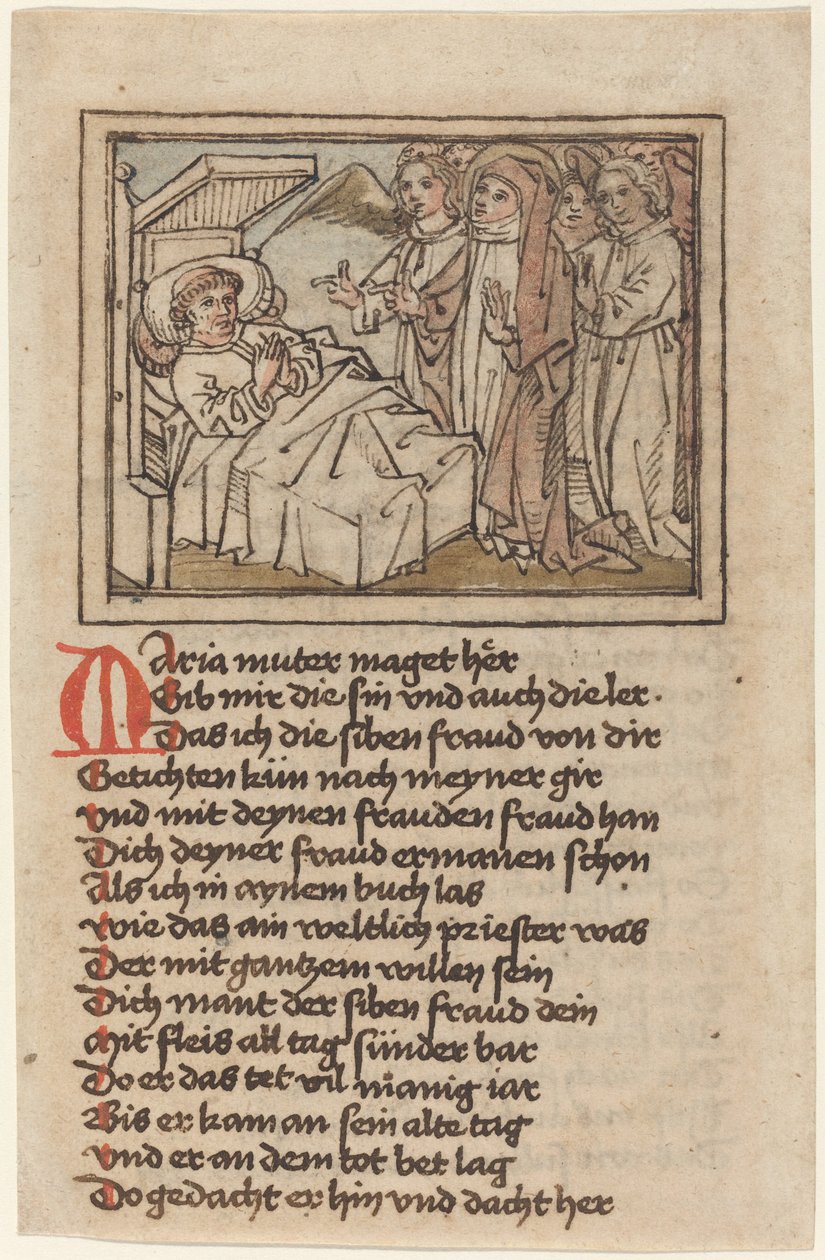 Maria muter maget hër
Gib mir die sin vnd auch die ler.
Das ich die siben fraud von dir
Getichten kün nach meyner gir
vnd mit deynen frauden fraud han
Dich deyner fraud ermanen schon
Als ich in aynem buch las
wie das ain weltlich priester was
Der mit gantzem willen sein
Dich mant der siben fraud dein
Mit fleis all tag sünder bar
Do er das tet vil manig iar
Bis er kam an sein alte tag
vnd er an dem tot bet lag
Do gedacht er hin vnd dacht her